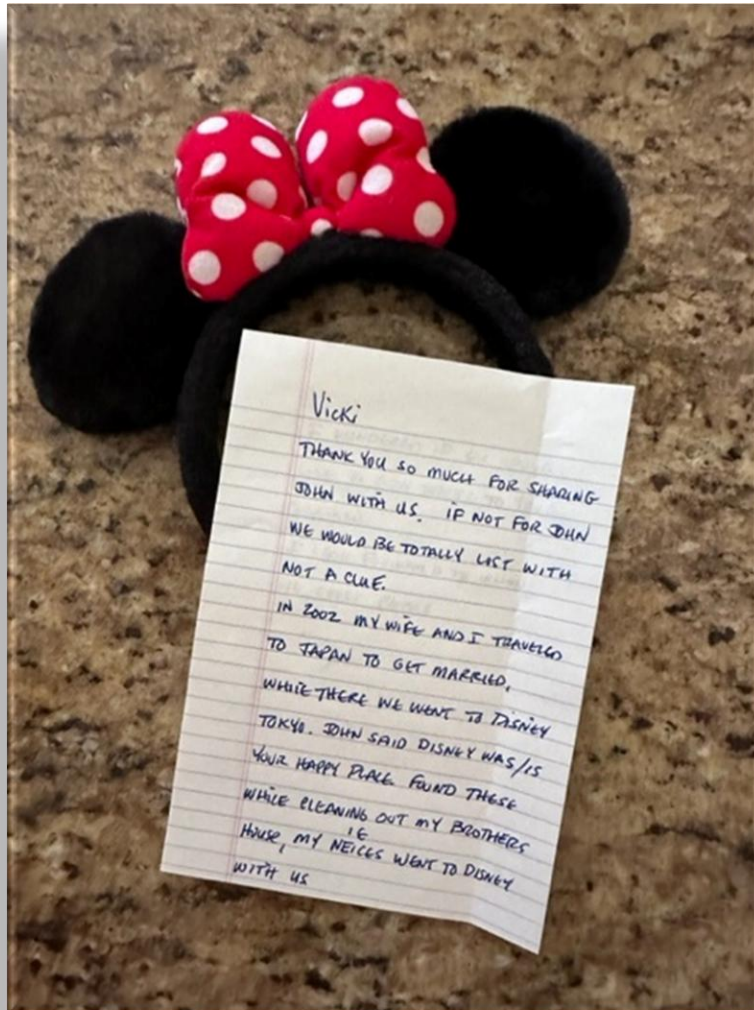 Vicki
THANK YOU SO MUCH FOR SHARING
JOHN WITH US. IF NOT FOR JOHN
WE WOULD BE TOTALLY LOST WITH
NOT A CLUE.
IN 2002 MY WIFE AND I TRAVELED
TO JAPAN TO GET MARRIED,
WHILE THERE WE WENT TO DISNEY
TOKYO. JOHN SAID DISNEY WAS/IS
YOUR HAPPY PLACE FOUND THESE
WHILE CLEANING OUT MY BROTHERS
IE
HOUSE, MY NEICES WENT TO DISNEY
WITH US